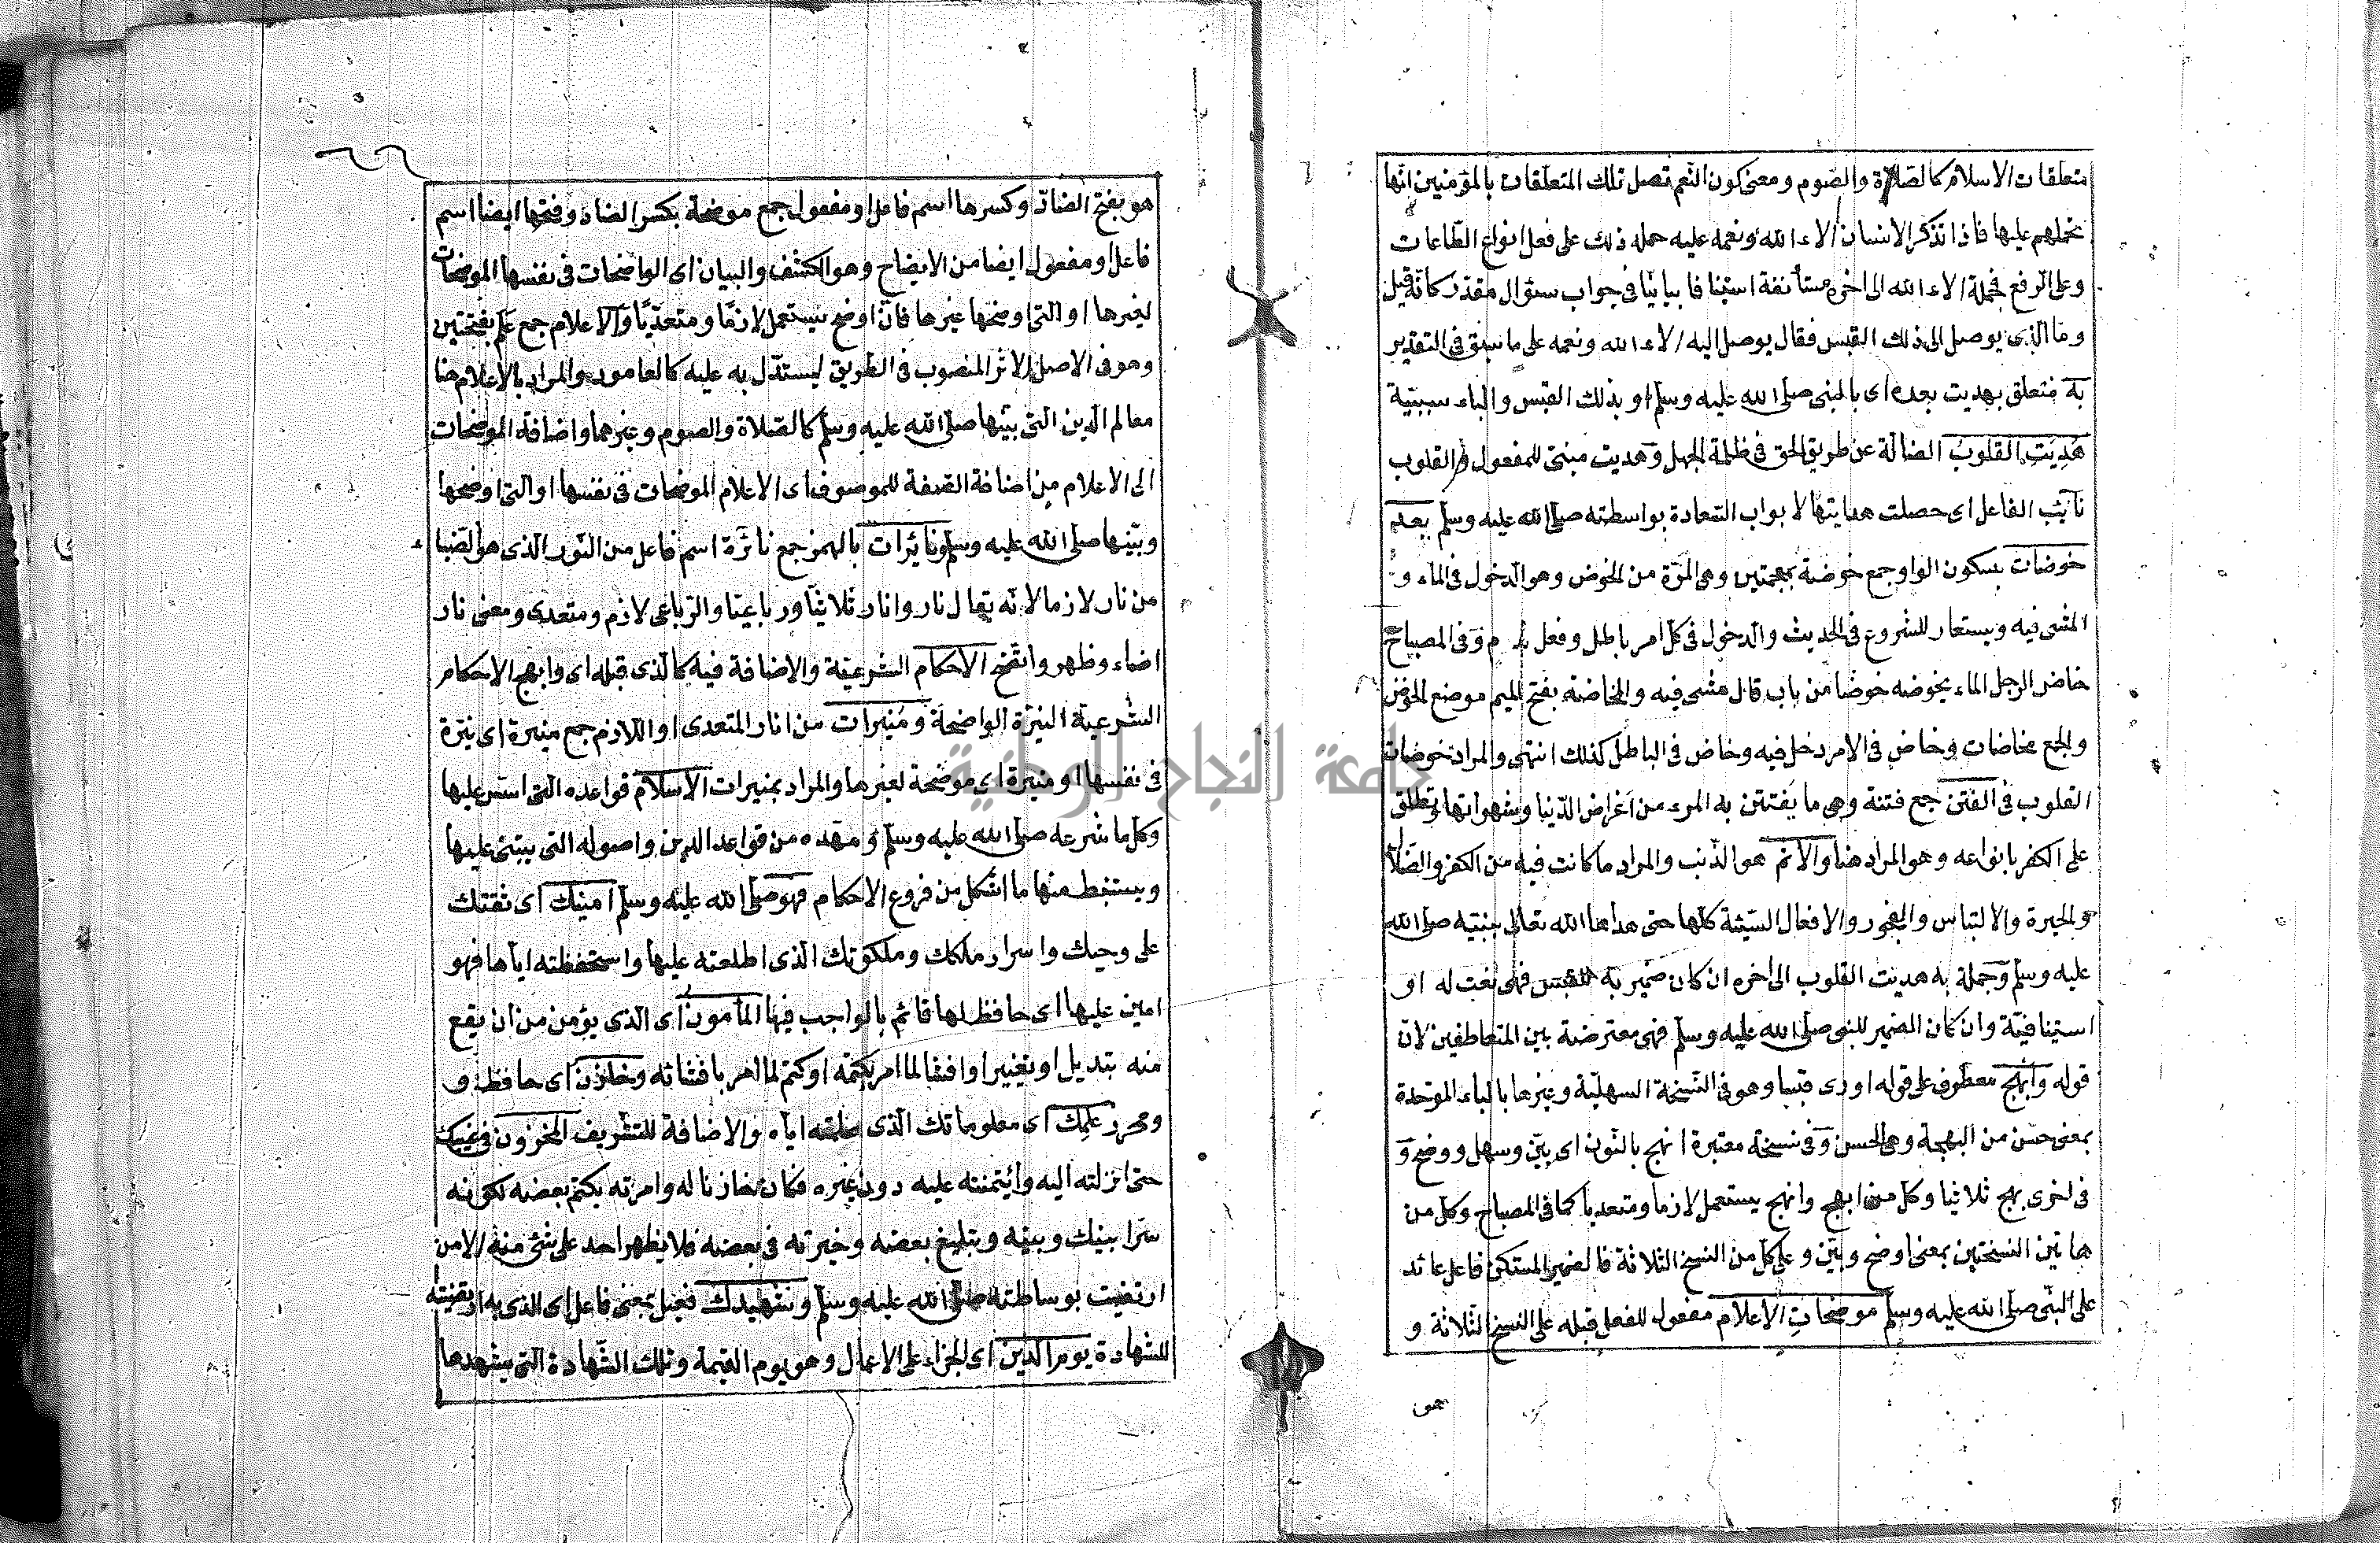 متعلقات الاسلام كالصلاة والصوم ومعنى كون النعم تصل تلك المتعلقات بالمؤمنين انها
تحملهم عليها فاذا تذكر الانسان الاء الله ونعمه عليه حمله ذلك على فعل انواع الطاعات
وعلى الرفع فجملة الاء الله الى اخره مستأنفة استينافا بيانيا في جواب سؤال مقدر كانه قيل
وما الذى يوصل الى ذلك القبس فقال يوصل اليه الاء الله ونعمه على ما سبق في التقدير
به متعلق بهديت بعده اى بالنبى صلى الله عليه وسلم او بذلك القبس والباء سببية
هديت القلوب الضالة عن طريق الحق في ظلمة الجهل وهديت مبنى للمفعول والقلوب
نائب الفاعل اى حصلت هدايتها لابواب السعادة بواسطته صلى الله عليه وسلم بعد
خوضات بسكون الواو جمع خوضة بمعجمتين وهى المرة من الخوض وهو الدخول في الماء و
المشى فيه ويستعار للشروع في الحديث والدخول في كل امر باطل وفعل وفى المصباح
خاض الرجل الماء يخوضه خوضا من باب قال مشى فيه والمخاضة بفتح الميم موضع الخوض
والجمع مخاضات وخاض في الامر دخل فيه وخاض في الباطل كذلك انتهى والمراد خوضات
القلوب في الفتن جمع فتنة وهى ما يفتتن به المرء من اغراض الدنيا وشهواتها وتطلق
على الكفر بانواعه وهو المراد هنا والاثم هو الذنب والمراد ما كانت فيه من الكفر والضلا
والحيرة والالتباس والفجور والافعال السيئة كلها حتى هداها الله تعالى بنبيه صلى الله
عليه وسلم وجملة به هديت القلوب الى اخره ان كان ضمير به للقبس فهى نعت له او
استينافية وان كان الضمير للنبى صلى الله عليه وسلم فهى معترضة بين المتعاطفين لان
قوله وابهج معطوف على قوله اورى قبسا وهو في النسخة السهلية وغيرها بالباء الموحدة
بمعنى حسن من البهجة وهى الحسن وفى نسخة معتبرة انهج بالنون اى بين وسهل ووضح و
في اخرى نهج ثلاثيا وكل من ابهج وانهج يستعمل لازما ومتعديا كما في المصباح وكل من
هاتين النسختين بمعنى اوضح وبين وعلى كل من النسخ الثلاثة فالضمير المستكن فاعل عائد
على النبى صلى الله عليه وسلم موضحات الاعلام مفعول للفعل قبله على النسخ الثلاثة و
هو
هو بفتح الضاد وكسرها اسم فاعل او مفعول جمع موضحة بكسر الضاد وفتحها ايضا اسم
فاعل او مفعول ايضا من الايضاح وهو الكشف والبيان اى الواضحات في نفسها الموضحات
لغيرها او التى اوضحها غيرها فان اوضح يستعمل لازما ومتعديا والاعلام جمع علم بفتحتين
وهو في الاصل الاثر المنصوب في الطريق ليستدل به عليه كالعامود والمراد بالاعلام هنا
معالم الدين التى بينها صلى الله عليه وسلم كالصلاة والصوم وغيرهما واضافة الموضحات
الى الاعلام من اضافة الصفة للموصوف اى الاعلام الموضحات في نفسها او التى اوضحها
وبينها صلى الله عليه وسلم ونائرات بالهمز جمع نائرة اسم فاعل من النور الذى هو الضيا
من نار لازما لانه يقال نار وانار ثلاثيا ورباعيا والرباعى لازم ومتعدى ومعنى نار
اضاء وظهر واتضح الاحكام الشرعية والاضافة فيه كالذى قبله اى وابهج الاحكام
الشرعية النيرة الواضحة ومنيرات من انار المتعدى او اللازم جمع منيرة اى نيرة
في نفسها او منيرة اى موضحة لغيرها والمراد بمنيرات الاسلام قواعده التى استقر عليها
وكل ما شرعه صلى الله عليه وسلم ومهده من قواعد الدين واصوله التى يبتنى عليها
ويستنبط منها ما اشكل من فروع الاحكام فهو صلى الله عليه وسلم امينك اى ثقتك
على وحيك واسرار ملكك وملكوتك الذى اطلعته عليها واستحفظته اياها فهو
امين عليها اى حافظ لها قائم بالواجب فيها المأمون اى الذى يؤمن من ان يقع
منه تبديل او تغيير او افشا لما امر بكتمه او كتم لما امر بافشائه وخازن اى حافظ و
ومحرر علمك اى معلوماتك الذى علمته اياه والاضافة للتشريف المخزون في غيبك
حتى انزلته اليه وائتمنته عليه دون غيره فكان خازنا له وامرته بكتم بعضه لكونه
سرا بينك وبينه وبتبليغ بعضه وخيرته في بعضه فلا يظهر احد على شئ منه الا من
ارتضيت بوساطته صلى الله عليه وسلم وشهيدك فعيل بمعنى فاعل اى الذى ارتضيته
للشهادة يوم الدين اى الجزاء على الاعمال وهو يوم القيمة وتلك الشهادة التى يشهدها
جامعة النجاح الوطنية